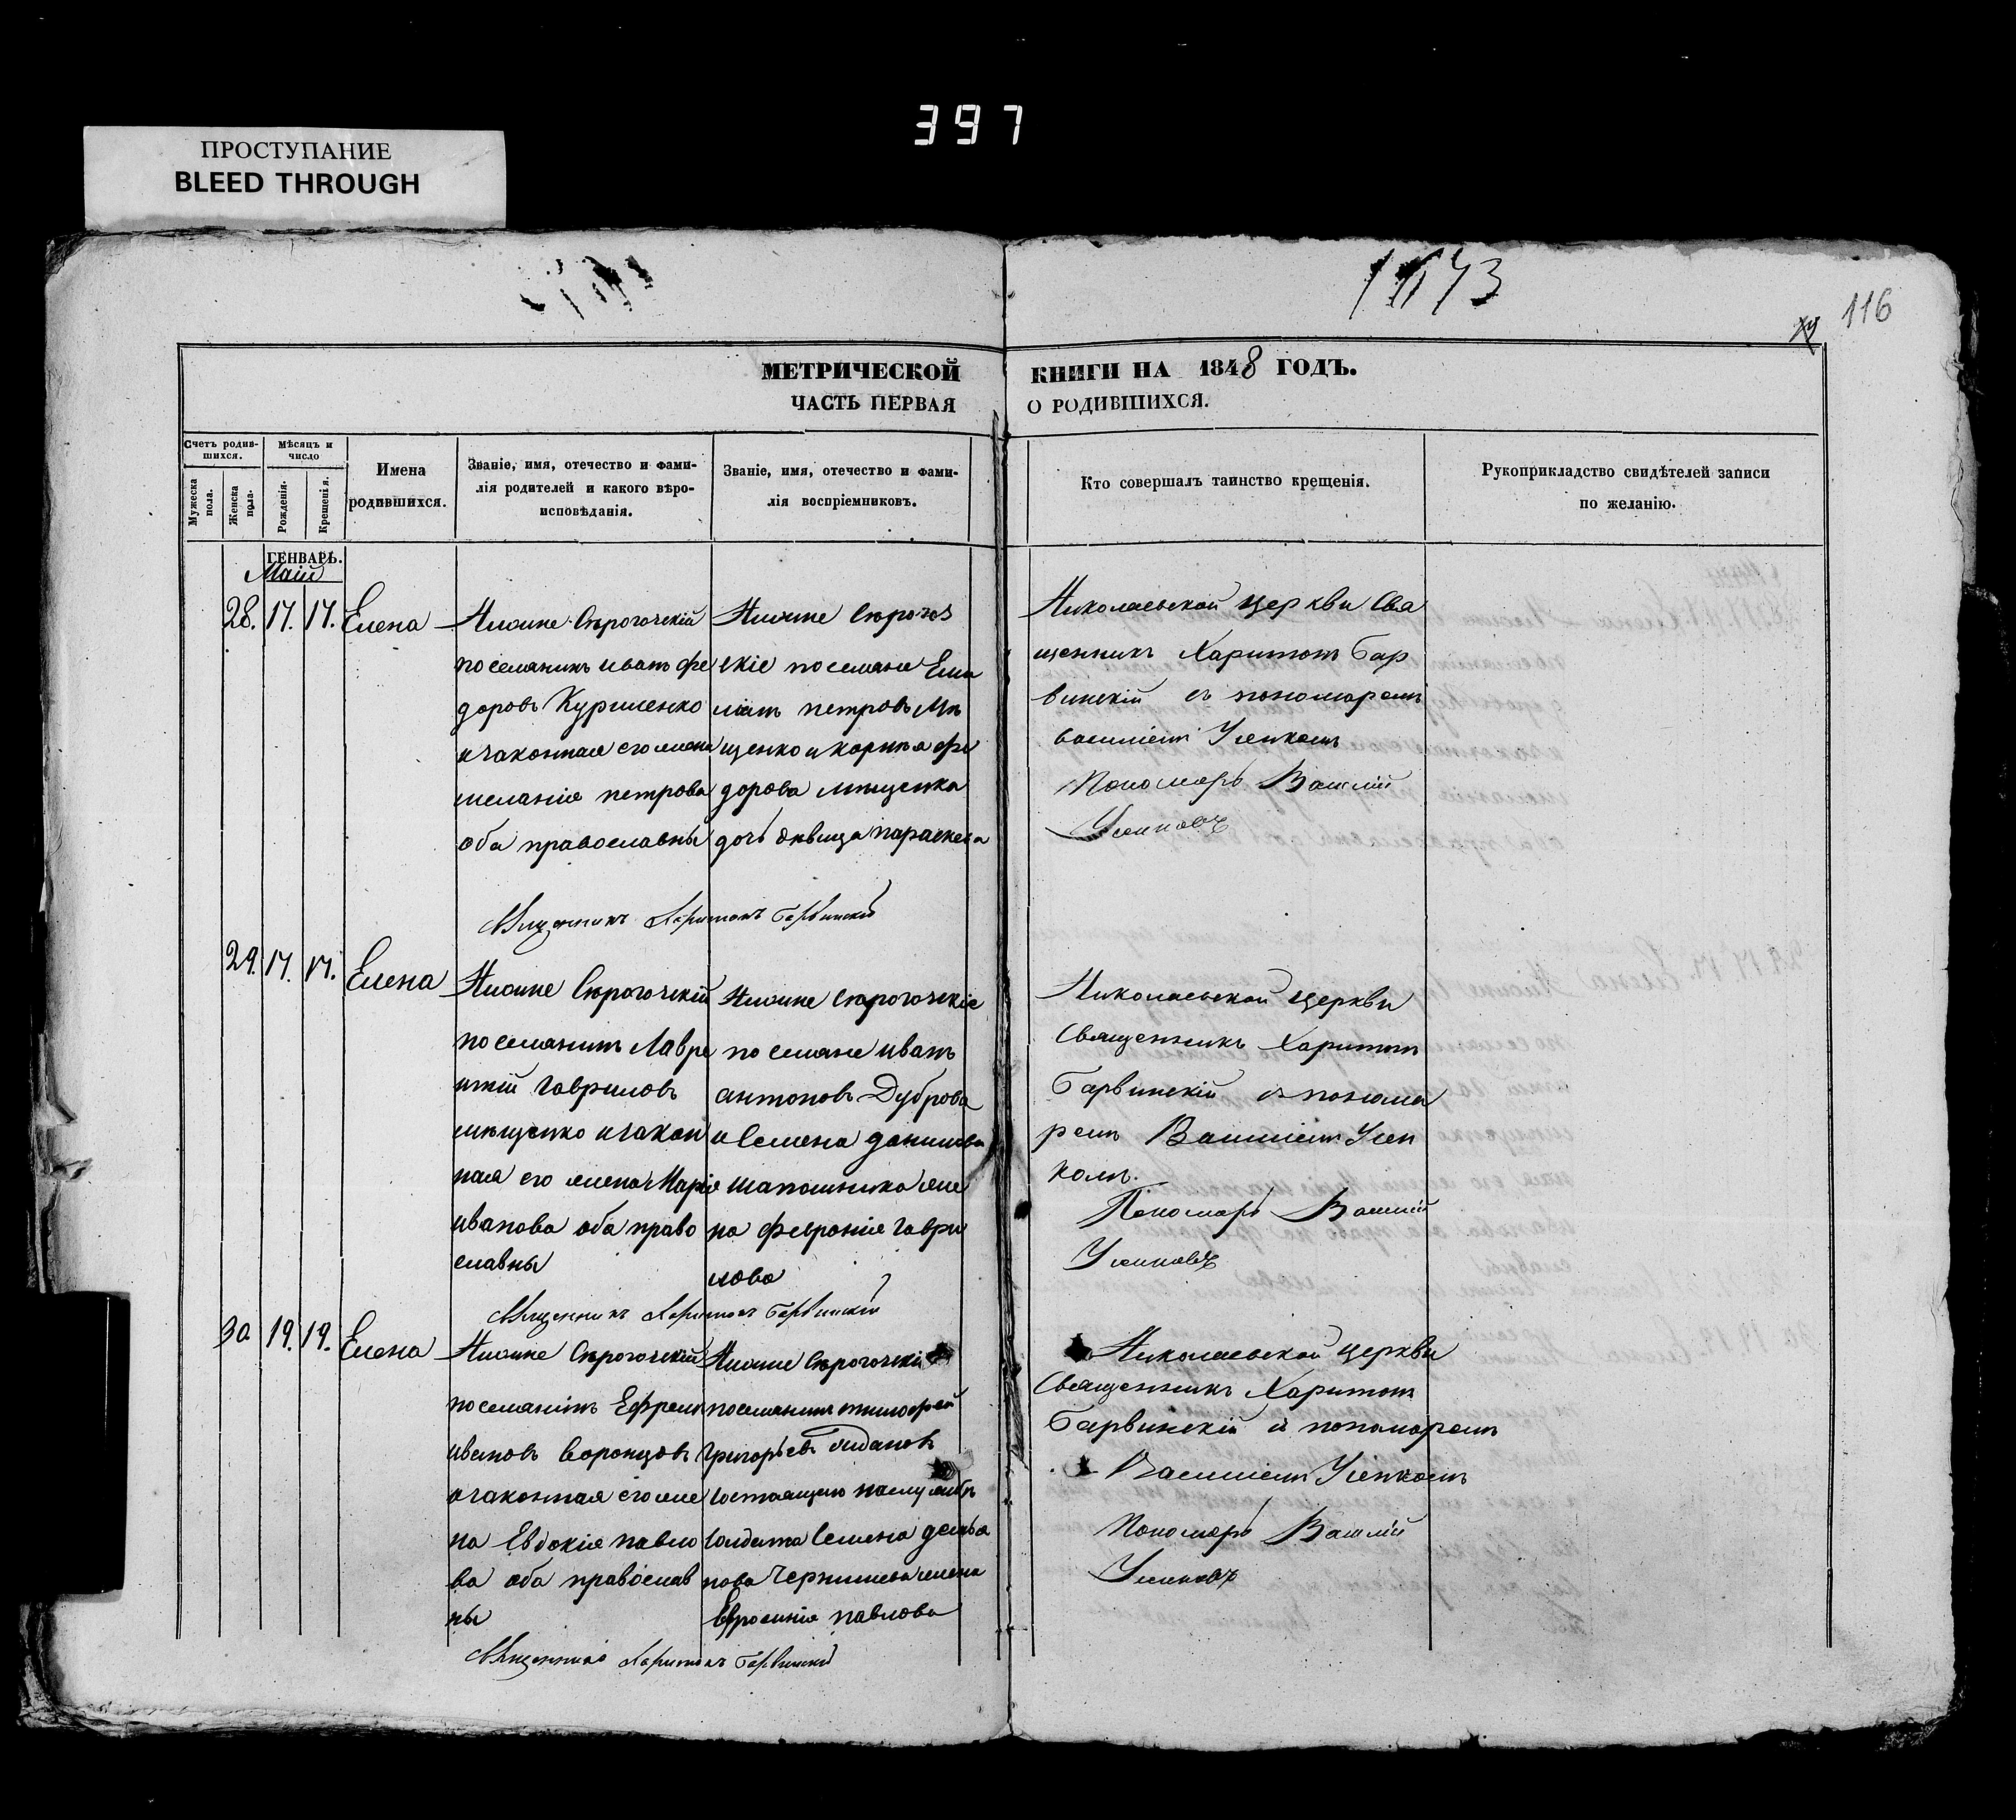 397
ПРОСТУПАНИЕ
BLEED THROUGH
116
МЕТРИЧЕСКОЙ
ЧАСТЬ ПЕРВАЯ
КНИГИ НА 1848 ГОДЪ.
О РОДИВШИХСЯ.
Счетъ родив-
шихся.
Мужеска
пола.
Женска
пола.
Мѣсяцъ и
число
Рожденія.
Крещенія.
Имена
родившихся.
Званіе, имя, отечество и фами-
лія родителей и какого вѣро-
исповѣданія.
Званіе, имя, отечество и фами-
лія воспріемниковъ.
Кто совершалъ таинство крещенія.
Рукоприкладство свидѣтелей записи
по желанію.
ГЕНВАРЬ.
Маій
28. 17. 17. Елена
поселянинъ иванъ фе
доровъ Куриленко
и законная его жена
меланія петрова
оба православны
скіе поселяне Еми
ліанъ петровъ Мѣ
щенко и
дорова мищенка
дочь дѣвица параскева
Николаевской церкви Свя
щенникъ Харитонъ Бар
винскій съ пономаремъ
василіемъ
Пономарь Василій
Священникъ Харитонъ Барвинскій
29. 17. 17. Елена
поселянинъ Лавре
нтій гавриловъ
мищенко и закон
ная его жена Марія
иванова оба право
славны
поселяне иванъ
антоновъ Дуброва
и Семена данилова
шапошника же
на Февронія гаври
лова
Николаевской церкви
Священникъ Харитонъ
Барвинскій съ понома
ремъ Василіемъ
Пономарь Василій
Священникъ Харитонъ Барвинскій
30 19. 19. Елена
поселянинъ Ефремъ
ивановъ Воронцовъ
и законная его же
на Евдокія павло
ва оба православ
ны
поселянинъ тимофей
григорьевъ
состоящаго на службѣ
солдата Семена демья
нова Чернишева жена
Евросинія павлова
Николаевской церкви
Священникъ Харитонъ
Барвинскій съ пономаремъ
Василіемъ
Пономарь Василій
Священникъ Харитонъ Барвинскій